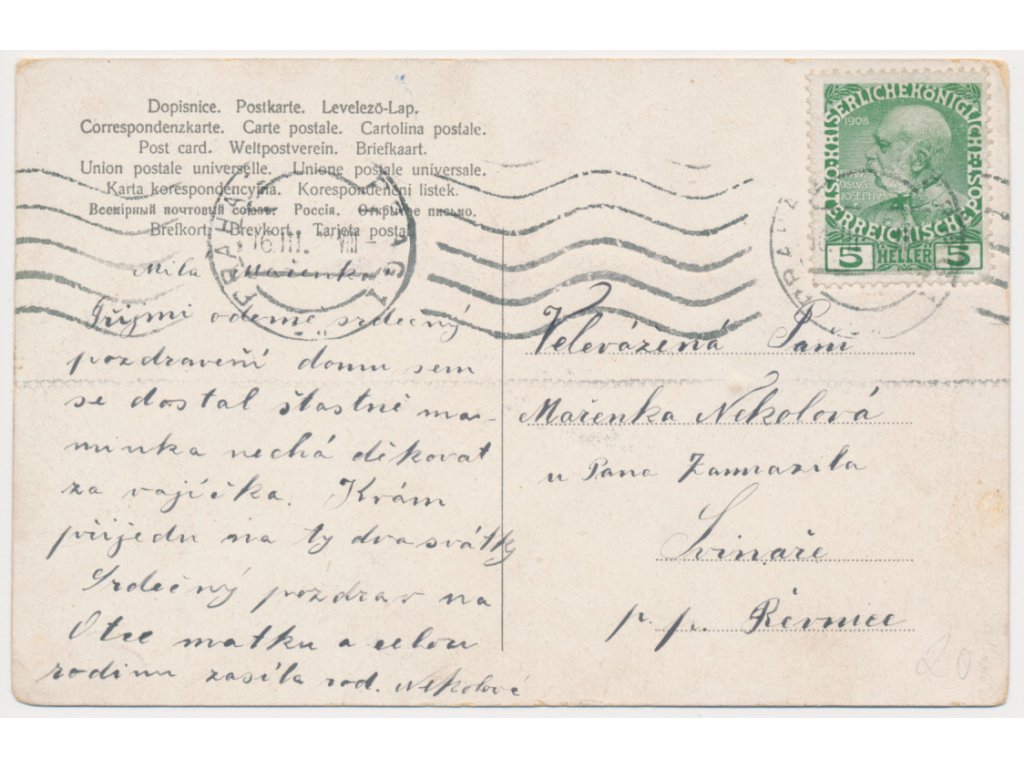 Dopisnice. Postkarte. Levelező-Lap.
Correspondenzkarte. Carte postale. Cartolina postale.
Post card. Weltpostverein. Briefkaart.
Union postale universelle. Unione postale universale.
Karta korespondencyjna. Korespondenční listek.
Всемірный почтовый союзъ. Россія. Открытое письмо.
Brefkort. Brevkort. Tarjeta postal
PRAHA
16.III. VIII
Milá Mařenko
Přijmi odemě srdečný
pozdravení domu sem
se dostal šťastně ma-
minka nechá děkovat
za vajíčka. K vám
přijedu na ty dva svátky
Srdečný pozdrav na
Otce matku a celou
rodinu zasíla rod. Nekolové
KAISERLICHE KÖNIGLICHE
ÖSTERREICHISCHE
1908
5 HELLER 5
Velevážená Paní
Mařenka Nekolová
u Pana Zamrazila
Svinaře
p. p. Řevnice
20